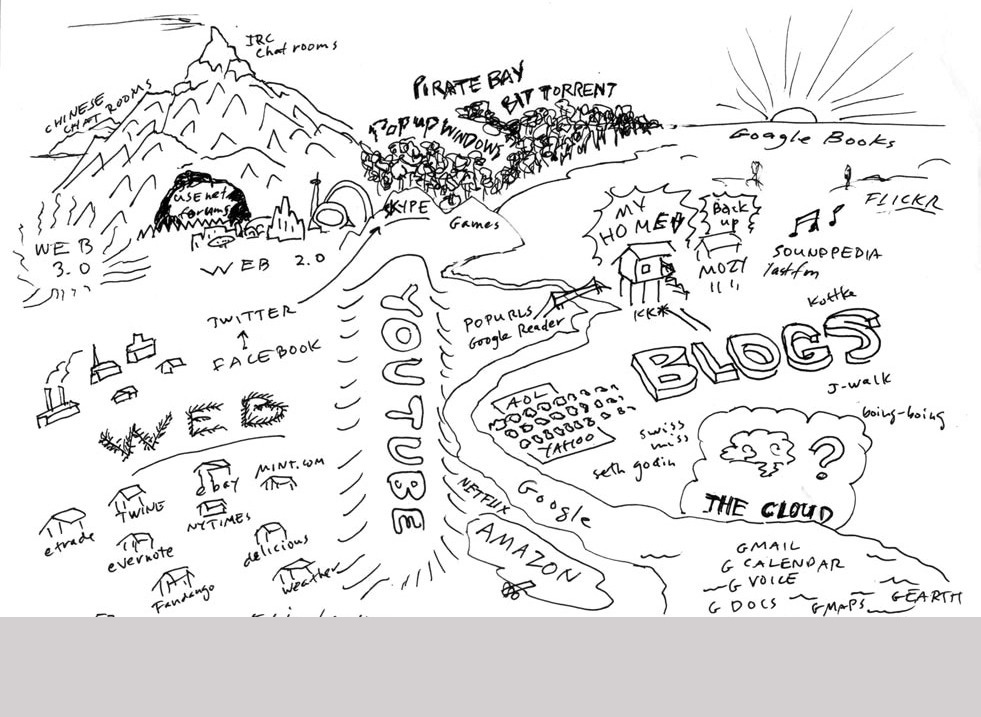 IRC
Chat rooms
CHINESE
CHAT ROOMS
PIRATE BAY
BIT TORRENT
POP UP WINDOWS
Google Books
usenet
forums
SKYPE
Games
MY
HOME
Back
up
MOZY
FLICKR
SOUNDPEDIA
Lastfm
WEB
3.0
WEB 2.0
TWITTER
FACEBOOK
YOUTUBE
POPURLS
Google Reader
KK*
Kottke
BLOGS
J-walk
boing-boing
AOL
YAHOO
swiss
miss
seth godin
?
THE CLOUD
WEB
ebay
MINT.COM
TWINE
NYTIMES
etrade
evernote
delicious
Fandango
Weather
NETFLIX
Google
AMAZON
GMAIL
G CALENDAR
G VOICE
G DOCS
GMAPS
GEARTH